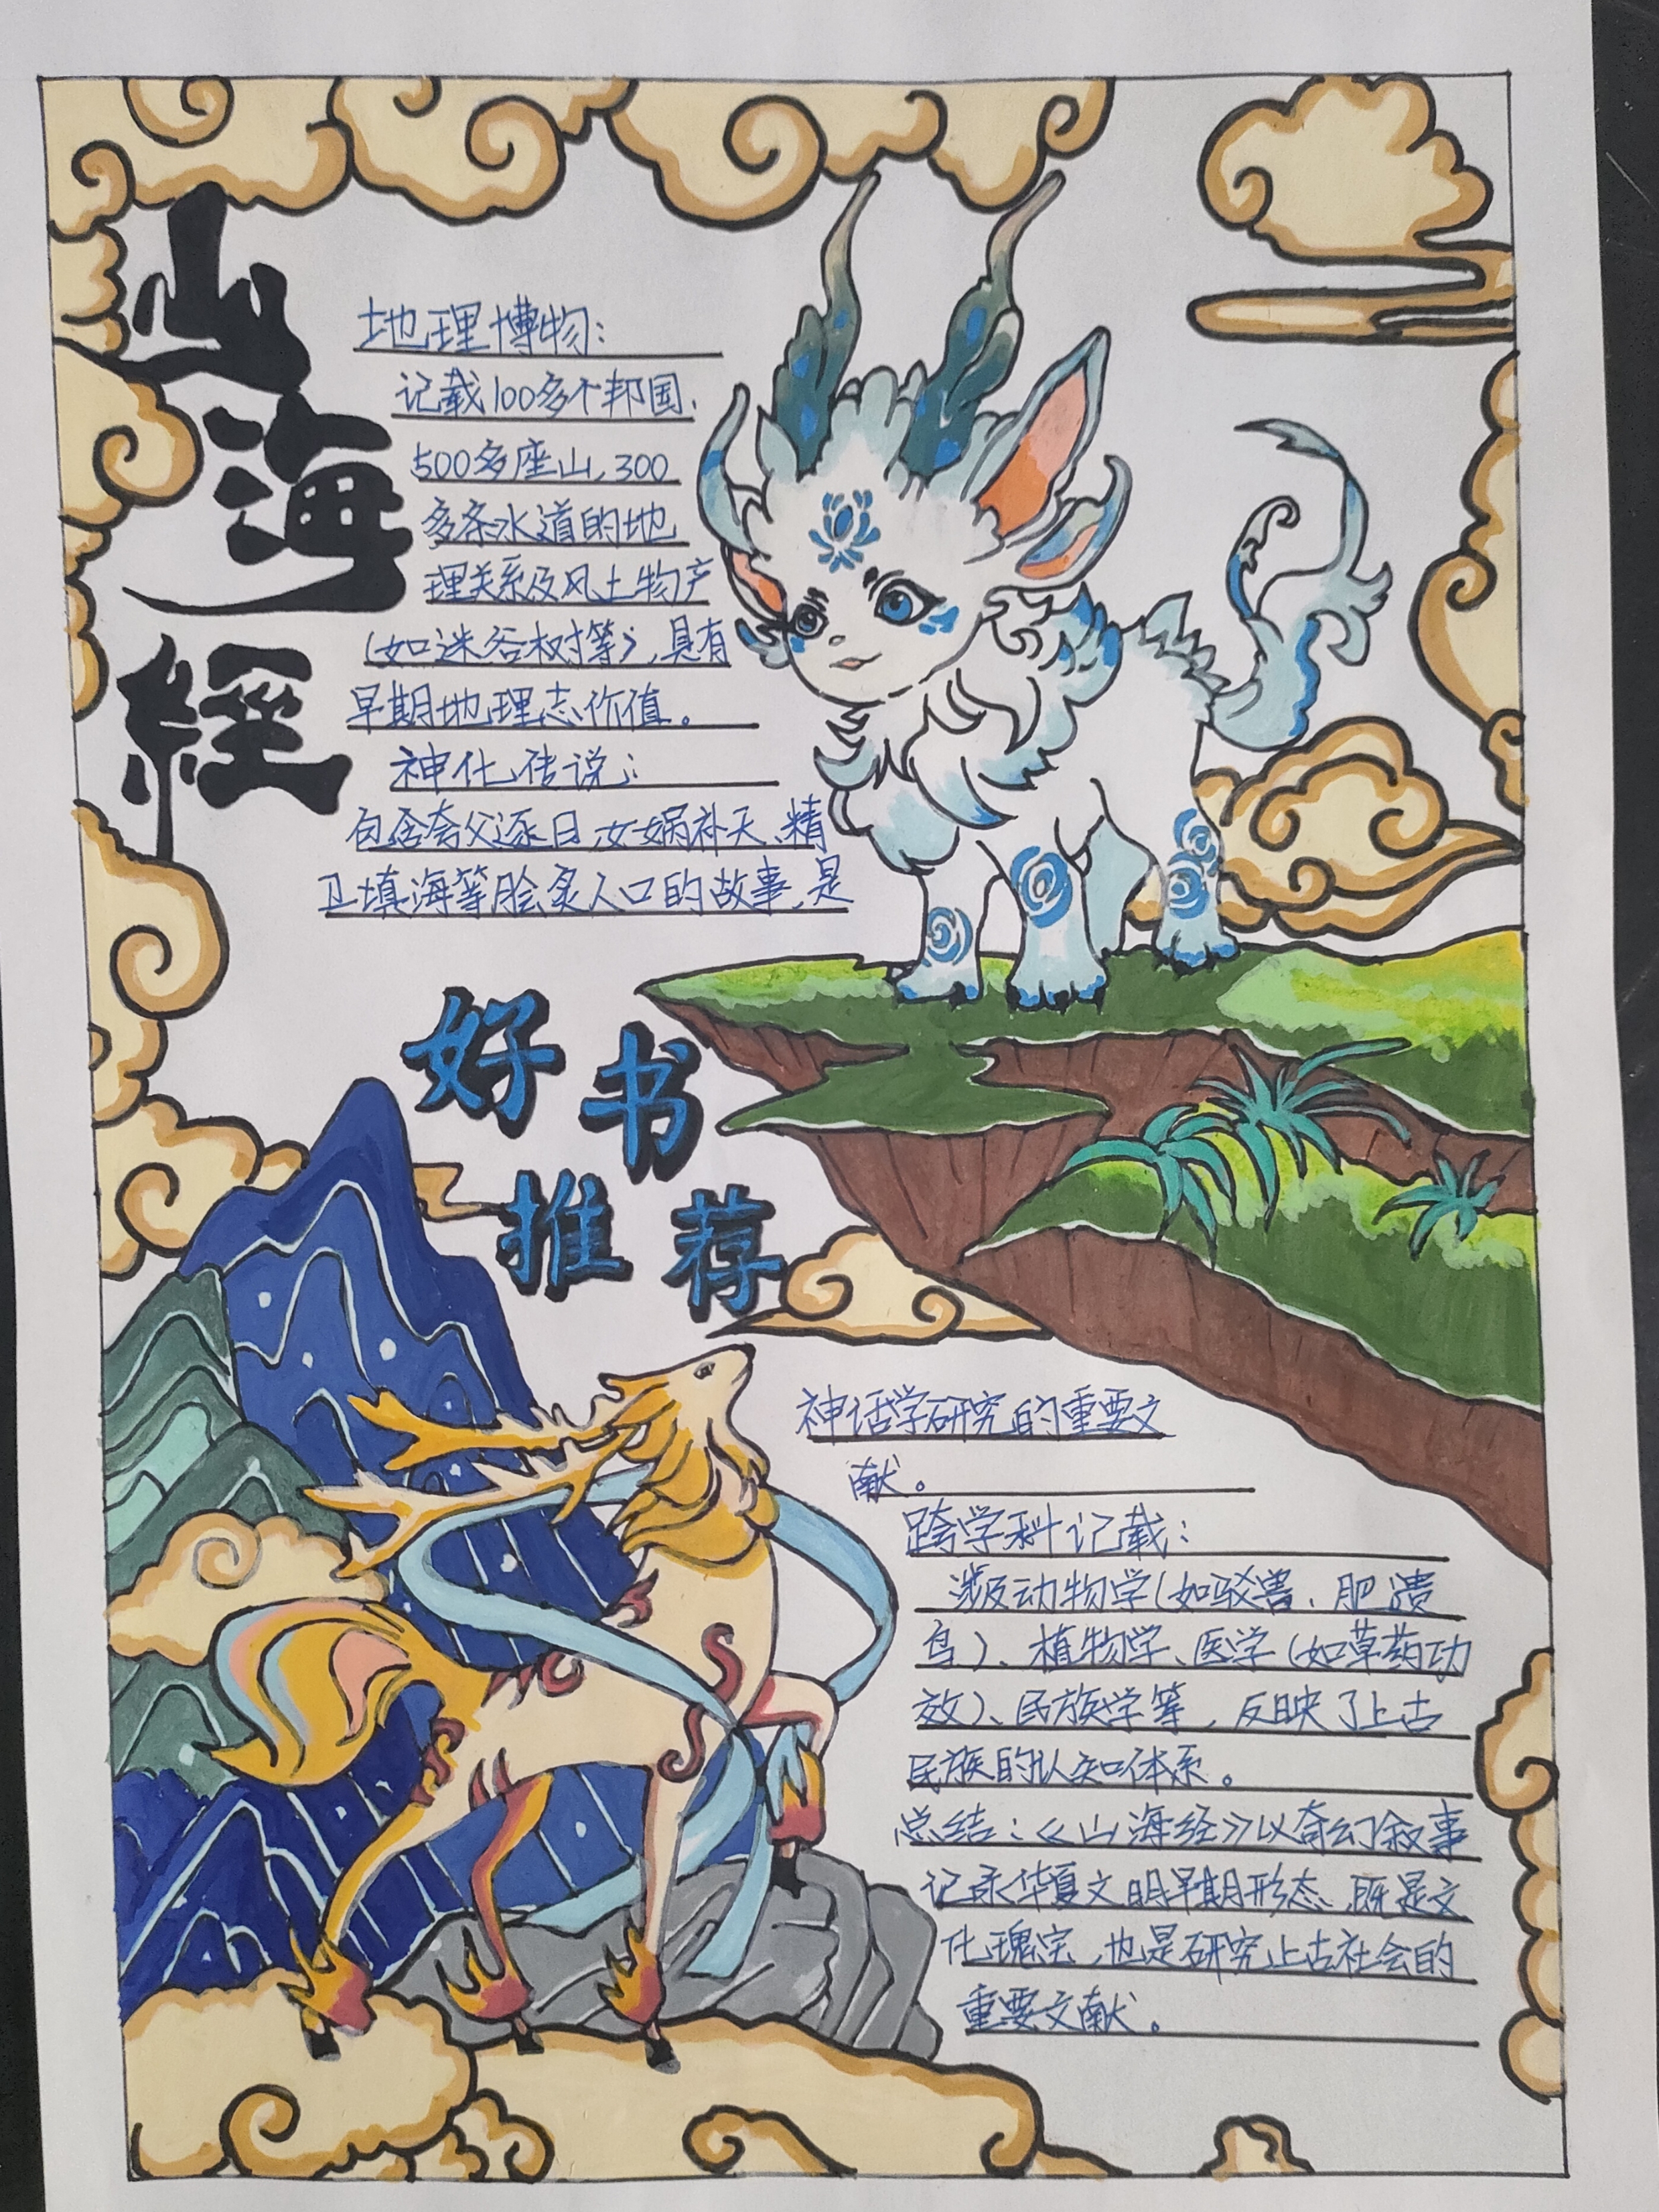 山海經
地理博物：
记载100多个邦国、
500多座山、300
多条水道的地
理关系及风土物产
（如迷谷树等），具有
早期地理志价值。
神化传说：
包含夸父逐日、女娲补天、精
卫填海等脍炙人口的故事，是
好书
推荐
神话学研究的重要文
献。
跨学科记载：
涉及动物学（如驳害、肥遗
鸟）、植物学、医学（如草药功
效）、民族学等，反映了上古
民族的认知体系。
总结：《山海经》以奇幻叙事
记录华夏文明早期形态，既是文
化瑰宝，也是研究上古社会的
重要文献。